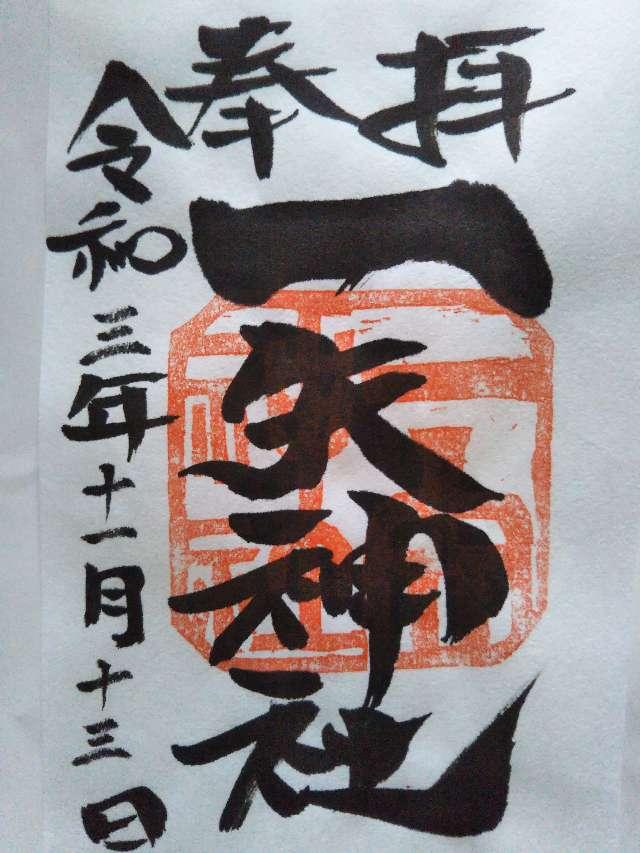 奉拝
一矢神社
令和三年十一月十三日